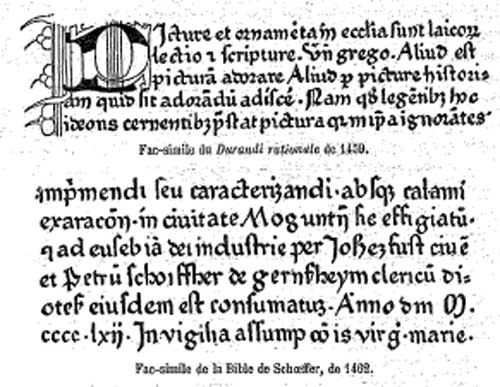 Picture et ornamēta in ecclīa sunt laicoꝝ
lectio ⁊ scripture. Vn̄ grego. Aliud est
picturā adorare Aliud ꝑ picture histori⸗
am quid sit adorādū adiscē. Nam qd̓ legētibꝫ hoc
ideons cernentibꝫ p̄stat pictura qꝛ in ip̄a ignorātes
Fac-simile du Durandi rationale de 1459.
imp̄mendi seu caracterizandi · absqꝫ calami
exaracōn̄ · in ciuitate Moguntn̄ sic effigiatū ·
⁊ ad eusebiā dei industrie per Joh̄ez fust ciuē
et Petrū schoiffher de gernsh̄eym clericū di⸗
otes̄ eiusdem est consumatuꝫ · Anno dn̄i M ·
cccc · lxij · In vigilia assumpcōis virg̓ · marie ·
Fac-simile de la Bible de Schœffer, de 1462.